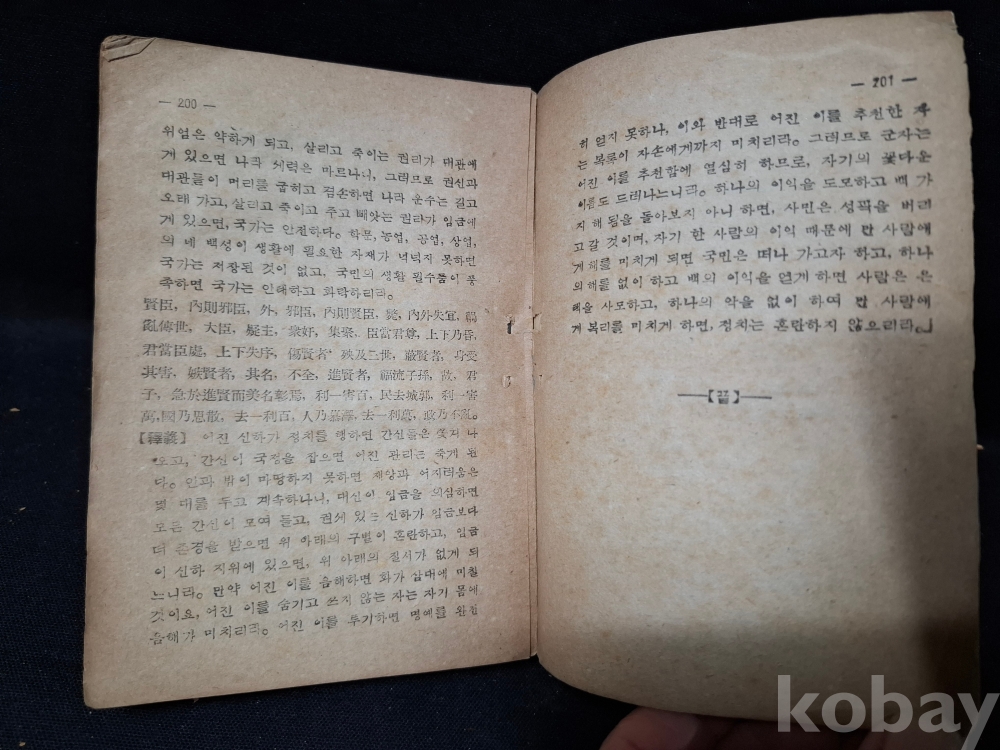 — 200 —
위엄은 약하게 되고, 살리고 죽이는 권리가 대관에
게 있으면 나라 세력은 마르나니, 그러므로 권신과
대관들이 머리를 굽히고 겸손하면 나라 운수는 길고
오래 가고, 살리고 죽이고 주고 빼앗는 권리가 임금에
게 있으면, 국가는 안전하다。 학문, 농업, 공업, 상업,
의 네 백성이 생활에 필요한 자재가 넉넉지 못하면
국가는 저장된 것이 없고, 국민의 생활 필수품이 풍
족하면 국가는 안태하고 화락하리라。
賢臣, 內則邪臣, 外, 邪臣, 內則賢臣, 斃, 內外失宜, 禍
亂傳世, 大臣, 疑主, 衆奸, 集聚、臣當君尊, 上下乃昏,
君當臣處, 上下失序, 傷賢者, 殃及三世, 蔽賢者, 身受
其害, 嫉賢者, 其名, 不全, 進賢者, 福流子孫, 故, 君
子, 急於進賢而美名彰焉, 利一害百, 民去城郭, 利一害
萬, 國乃思散, 去一利百, 人乃慕澤, 去一利萬, 政乃不亂。
【釋義】 어진 신하가 정치를 행하면 간신들은 쫓겨 나
오고, 간신이 국정을 잡으면 어진 관리는 죽게 된
다。 안과 밖이 마땅하지 못하면 재앙과 어지러움은
몇 대를 두고 계속하나니, 대신이 임금을 의심하면
모든 간신이 모여 들고, 권세 있는 신하가 임금보다
더 존경을 받으면 위 아래의 구별이 혼란하고, 임금
이 신하 지위에 있으면, 위 아래의 질서가 없게 되
느니라。 만약 어진 이를 음해하면 화가 삼대에 미칠
것이요, 어진 이를 숨기고 쓰지 않는 자는 자기 몸에
음해가 미치리라。 어진 이를 투기하면 명예를 완전
— 201 —
히 얻지 못하나, 이와 반대로 어진 이를 추천한 자
는 복록이 자손에게까지 미치리라。 그러므로 군자는
어진 이를 추천함에 열심히 하므로, 자기의 꽃다운
이름도 드러나느니라。 하나의 이익을 도모하고 백 가
지 해 됨을 돌아보지 아니 하면, 사민은 성곽을 버려
고 갈 것이며, 자기 한 사람의 이익 때문에 만 사람에
게 해를 미치게 되면 국민은 떠나 가고자 하고, 하나
의 해를 없이 하고 백의 이익을 얻게 하면 사람은 은
혜을 사모하고, 하나의 악을 없이 하여 만 사람에
게 복리를 미치게 하면, 정치는 혼란하지 않으리라。」
—【끝】—
kobay